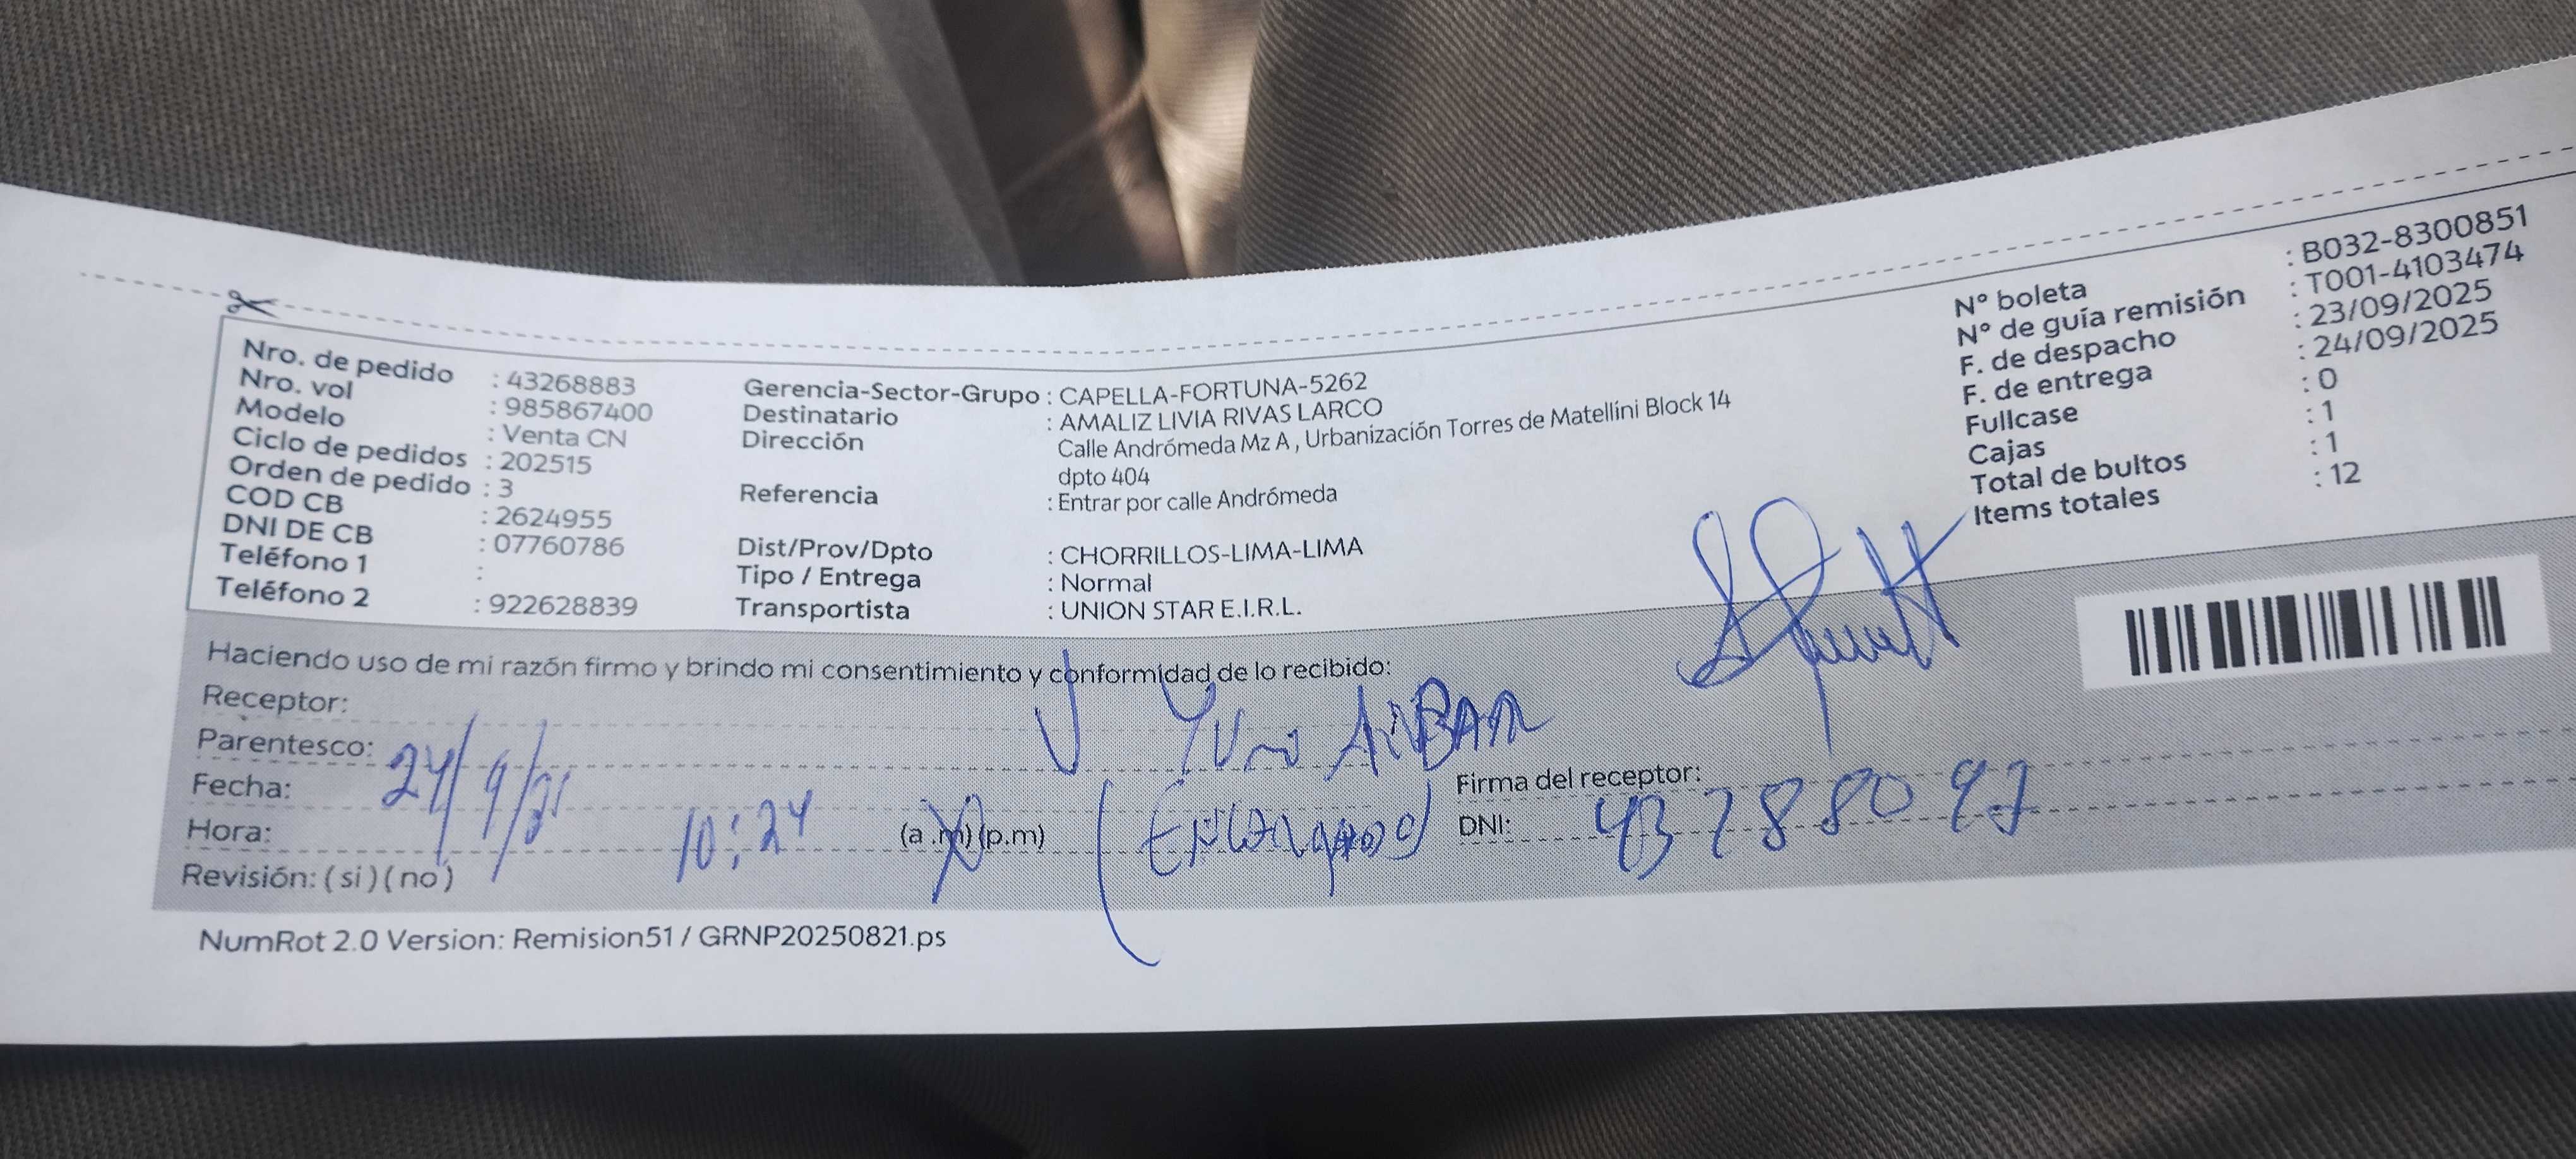 Nro. de pedido : 43268883
Nro. vol : 985867400
Modelo : Venta CN
Ciclo de pedidos : 202515
Orden de pedido : 3
COD CB : 2624955
DNI DE CB : 07760786
Teléfono 1 :
Teléfono 2 : 922628839
Gerencia-Sector-Grupo : CAPELLA-FORTUNA-5262
Destinatario : AMALIZ LIVIA RIVAS LARCO
Dirección : Calle Andrómeda Mz A , Urbanización Torres de Matellini Block 14
dpto 404
Referencia : Entrar por calle Andrómeda
Dist/Prov/Dpto : CHORRILLOS-LIMA-LIMA
Tipo / Entrega : Normal
Transportista : UNION STAR E.I.R.L.
N° boleta : B032-8300851
N° de guía remisión : T001-4103474
F. de despacho : 23/09/2025
F. de entrega : 24/09/2025
Fullcase : 0
Cajas : 1
Total de bultos : 1
Items totales : 12
Haciendo uso de mi razón firmo y brindo mi consentimiento y conformidad de lo recibido:
Receptor:
Parentesco:
Fecha: 24/9/
Hora: 10:24 (a .m) (p.m)
Revisión: ( si ) ( no )
Firma del receptor:
DNI: 43788097
NumRot 2.0 Version: Remision51 / GRNP20250821.ps